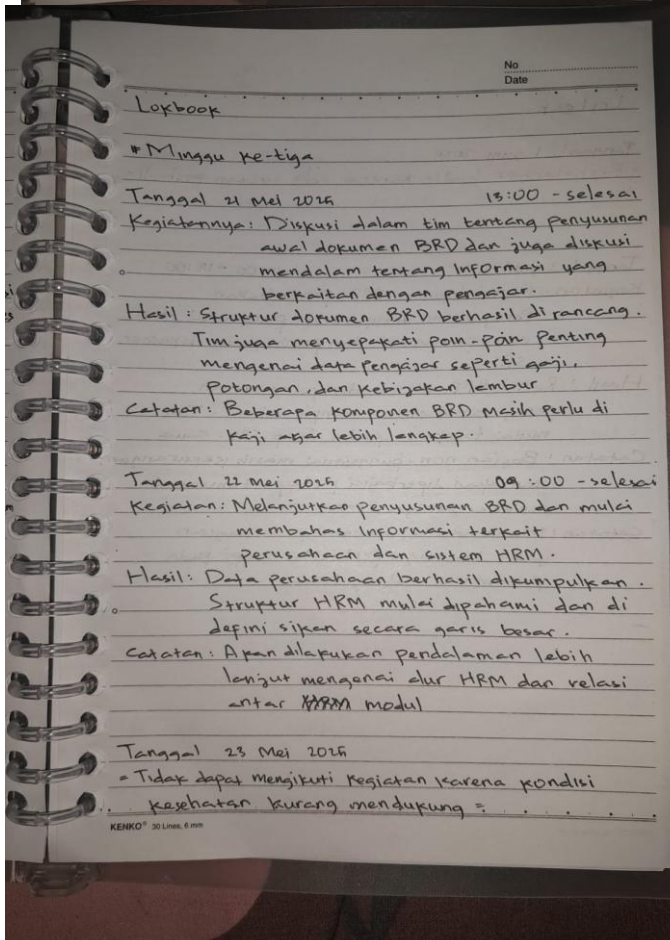 No
Date
Lokbook
* Minggu ke-tiga
Tanggal 21 Mei 2025 13:00 - selesai
Kegiatannya: Diskusi dalam tim tentang penyusunan
awal dokumen BRD dan juga diskusi
mendalam tentang Informasi yang
berkaitan dengan pengajar.
Hasil: Struktur dokumen BRD berhasil dirancang.
Tim juga menyepakati poin-poin Penting
mengenai data pengajar seperti gaji,
potongan, dan kebijakan lembur
Catatan: Beberapa komponen BRD masih perlu di
kaji agar lebih lengkap.
Tanggal 22 Mei 2025 09:00 - selesai
Kegiatan: Melanjutkan penyusunan BRD dan mulai
membahas Informasi terkait
perusahaan dan sistem HRM.
Hasil: Data perusahaan berhasil dikumpulkan.
Struktur HRM mulai dipahami dan di
definisikan secara garis besar.
Catatan: Akan dilakukan pendalaman lebih
lanjut mengenai alur HRM dan relasi
antar modul
Tanggal 23 Mei 2025
= Tidak dapat mengikuti kegiatan karena kondisi
kesehatan kurang mendukung =
KENKO® 30 Lines, 6 mm